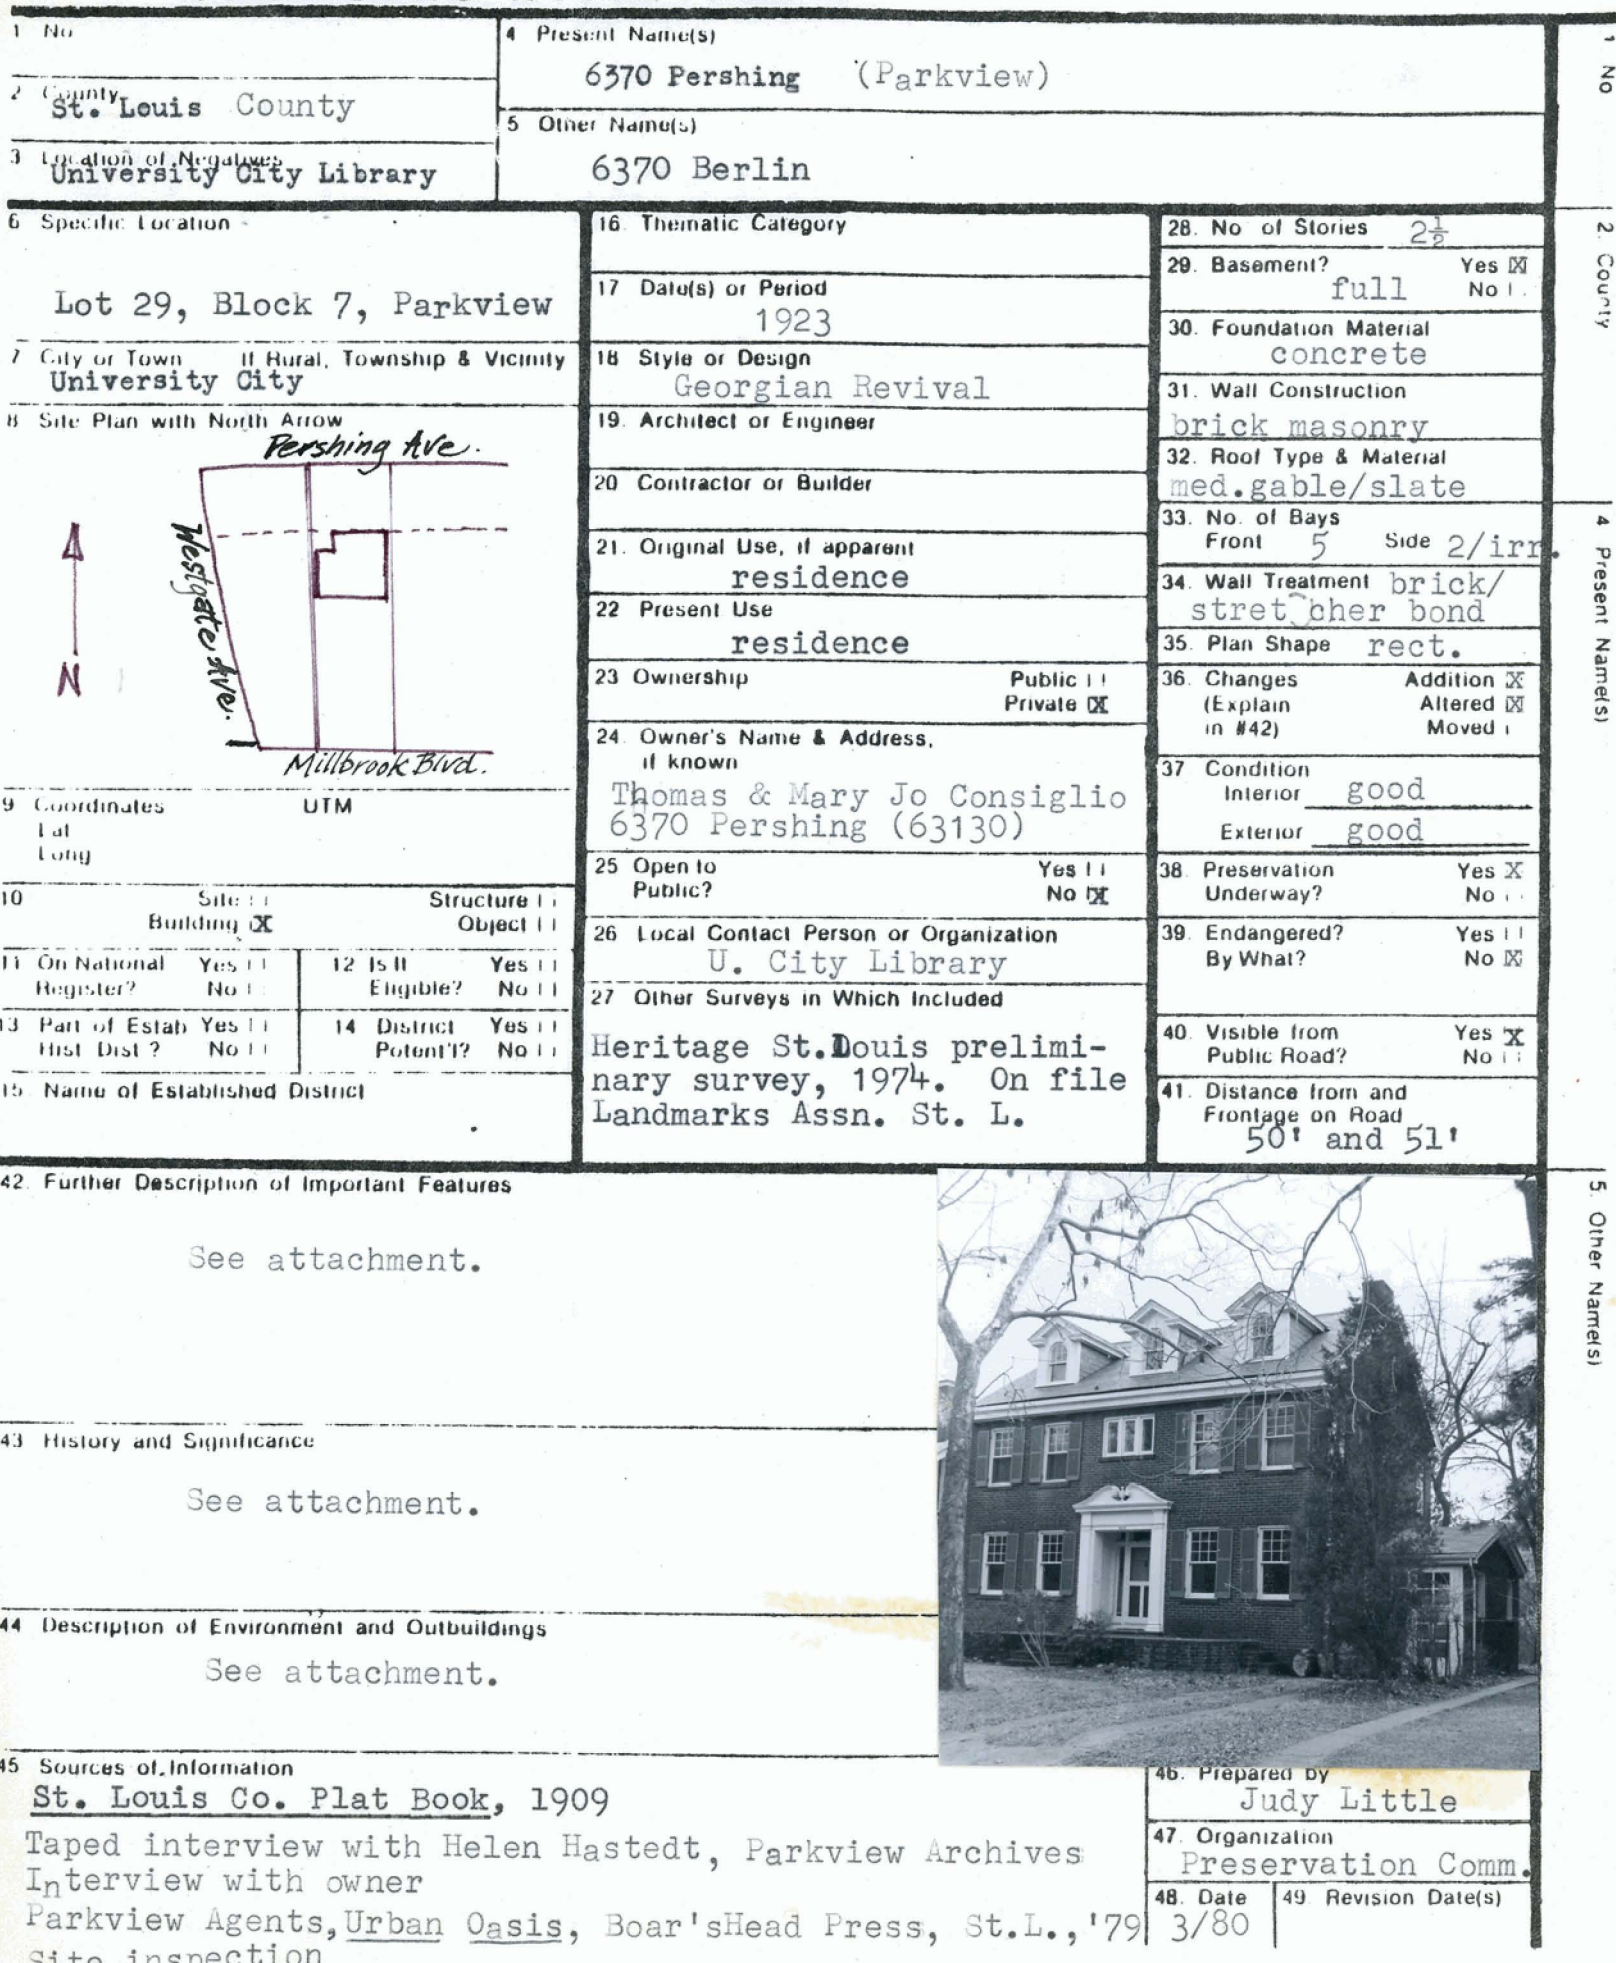 1 No
4 Present Name(s)
6370 Pershing (Parkview)
2 County
St. Louis County
5 Other Name(s)
6370 Berlin
3 Location of Negatives
University City Library
6 Specific Location
Lot 29, Block 7, Parkview
7 City or Town If Rural, Township & Vicinity
University City
8 Site Plan with North Arrow
Pershing Ave.
Westgate Ave.
N
Millbrook Blvd.
9 Coordinates UTM
Lat
Long
10 Site Structure
Building X Object
11 On National Register? Yes No
12 Is It Eligible? Yes No
13 Part of Estab Hist Dist? Yes No
14 District Potent'l? Yes No
15 Name of Established District
16. Thematic Category
17 Date(s) or Period
1923
18 Style or Design
Georgian Revival
19. Architect or Engineer
20 Contractor or Builder
21. Original Use, if apparent
residence
22 Present Use
residence
23 Ownership Public
Private X
24. Owner's Name & Address,
if known
Thomas & Mary Jo Consiglio
6370 Pershing (63130)
25 Open to Yes
Public? No X
26 Local Contact Person or Organization
U. City Library
27 Other Surveys in Which Included
Heritage St.Douis prelimi-
nary survey, 1974. On file
Landmarks Assn. St. L.
28. No of Stories 2½
29. Basement? Yes X
full No
30. Foundation Material
concrete
31. Wall Construction
brick masonry
32. Roof Type & Material
med.gable/slate
33. No. of Bays
Front 5 Side 2/irr.
34. Wall Treatment brick/
stretcher bond
35. Plan Shape rect.
36. Changes Addition X
(Explain Altered X
in #42) Moved
37 Condition
Interior good
Exterior good
38. Preservation Yes X
Underway? No
39. Endangered? Yes
By What? No X
40. Visible from Yes X
Public Road? No
41. Distance from and
Frontage on Road
50' and 51'
42. Further Description of Important Features
See attachment.
43 History and Significance
See attachment.
44 Description of Environment and Outbuildings
See attachment.
45 Sources of Information
St. Louis Co. Plat Book, 1909
Taped interview with Helen Hastedt, Parkview Archives
Interview with owner
Parkview Agents, Urban Oasis, Boar'sHead Press, St.L.,'79
Site inspection
46. Prepared by
Judy Little
47. Organization
Preservation Comm.
48. Date
3/80
49. Revision Date(s)
1 No
2. County
4 Present Name(s)
5. Other Name(s)